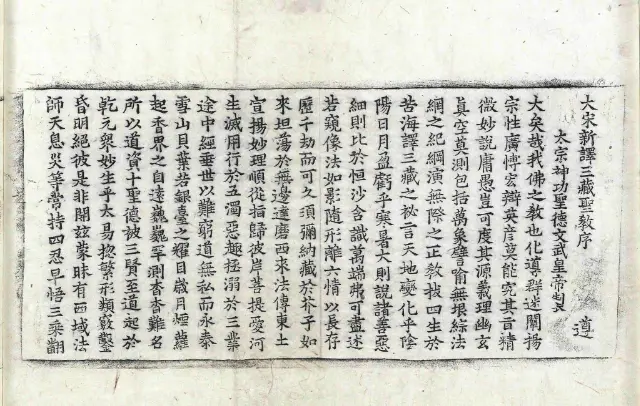 大宋新譯三藏聖教序
太宗神功聖德文武皇帝製
遵
大矣哉我佛之教也化導群迷闡揚
宗性廣博宏辯英彥莫能究其旨精
微妙說庸愚豈可度其源義理幽玄
真空莫測包括萬象譬喻無垠綜法
網之紀綱演無際之正教拔四生於
苦海譯三藏之祕言天地變化乎陰
陽日月盈虧乎寒暑大則說諸善惡
細則比於恒沙含識萬端弗可盡述
若窺像法如影隨形離六情以長存
歷千劫而可久須彌納藏於芥子如
來坦蕩於無邊達磨西來法傳東土
宣揚妙理順從指歸彼岸菩提愛河
生滅用行於五濁惡趣拯溺於三業
途中經垂世以難窮道無私而永泰
雪山貝葉若銀臺之耀目歲月煙蘿
起香界之自遠巍巍罕測杳杳難名
所以道資十聖德被三賢至道起於
乾元與妙生乎太易揔繁形類竅鑿
昏明絕彼是非開茲蒙昧有西域法
師天息災等常持四忍早悟三乘翻